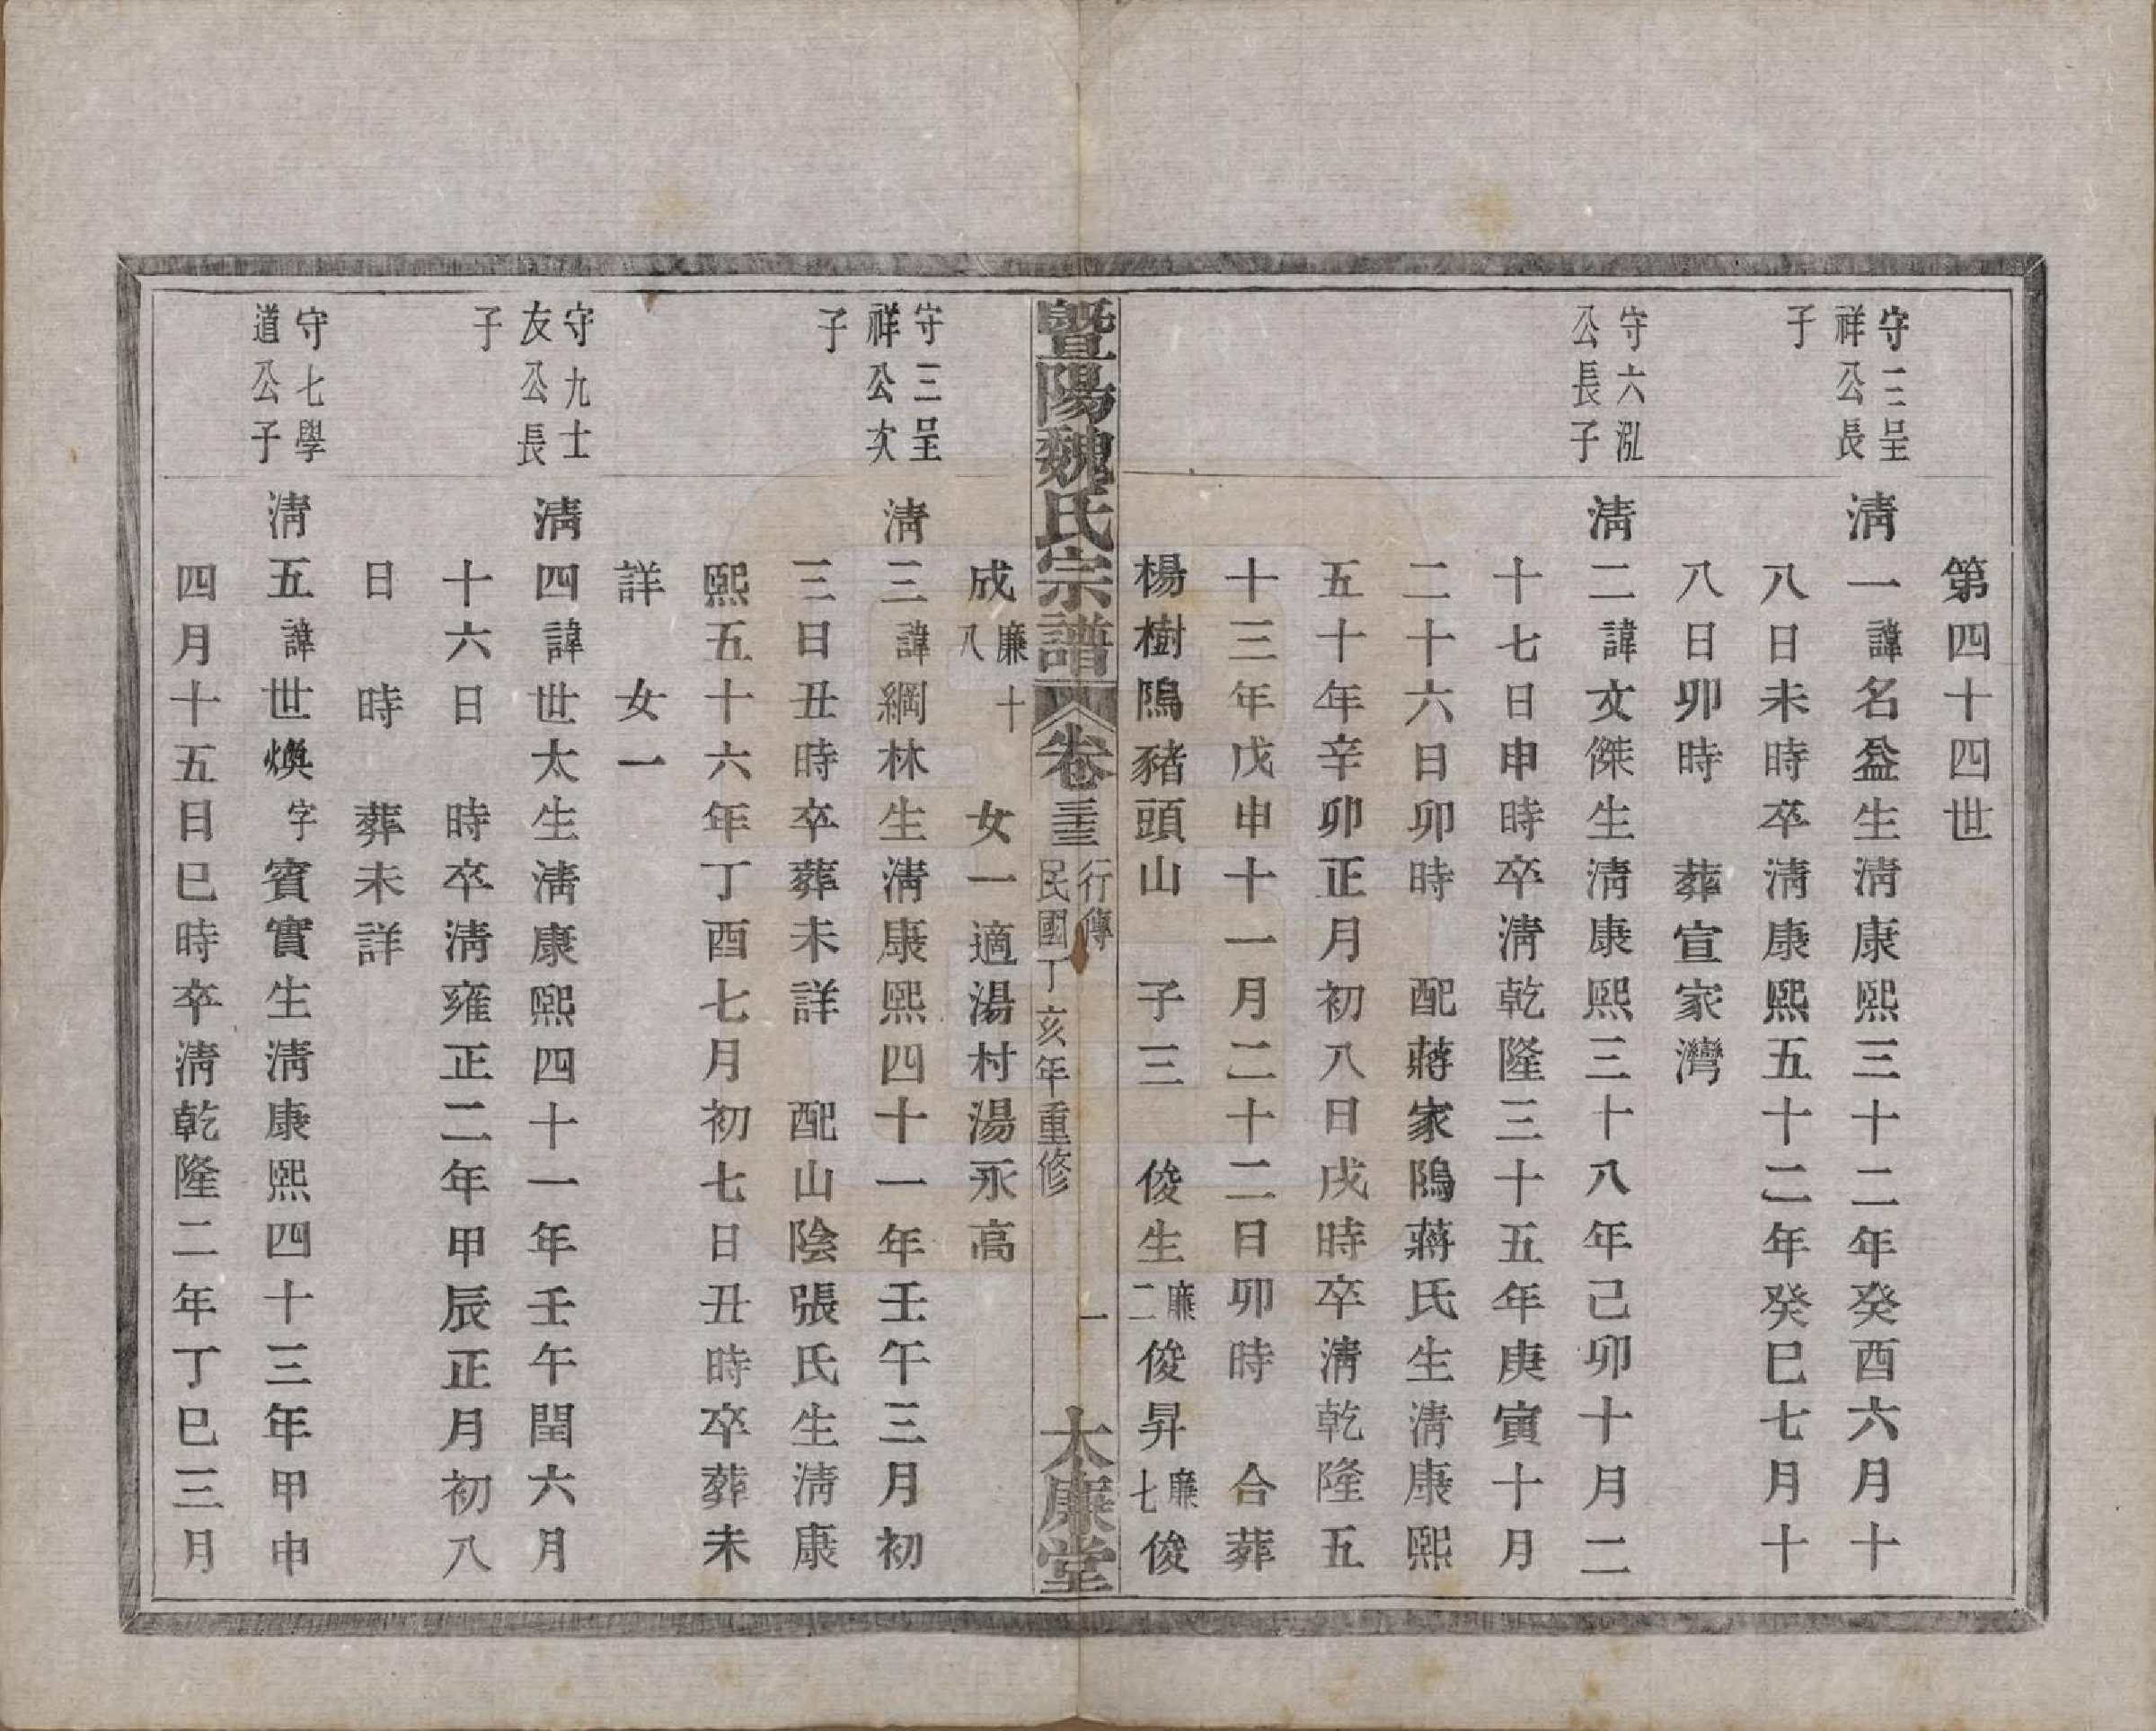 第四十四世
守三呈
祥公長
子
清一諱名益生清康熙三十二年癸酉六月十
八日未時卒清康熙五十二年癸巳七月十
八日卯時　葬宣家灣
守六泓
公長子
清二諱文傑生清康熙三十八年己卯十月二
十七日申時卒清乾隆三十五年庚寅十月
二十六日卯時　配蔣家隖蔣氏生清康熙
五十年辛卯正月初八日戌時卒清乾隆五
十三年戊申十一月二十二日卯時　合葬
楊樹隖豬頭山　子三　俊生廉二俊昇廉七俊
暨陽魏氏宗譜　卷三十三　行傳　民國丁亥年重修　一　大廉堂
成廉十八　女一適湯村湯永高
守三呈
祥公次
子
清三諱綱林生清康熙四十一年壬午三月初
三日丑時卒葬未詳　配山陰張氏生清康
熙五十六年丁酉七月初七日丑時卒葬未
詳　女一
守九士
友公長
子
清四諱世太生清康熙四十一年壬午閏六月
十六日　時卒清雍正二年甲辰正月初八
日　時　葬未詳
守七學
道公子
清五諱世煥字賓實生清康熙四十三年甲申
四月十五日巳時卒清乾隆二年丁巳三月